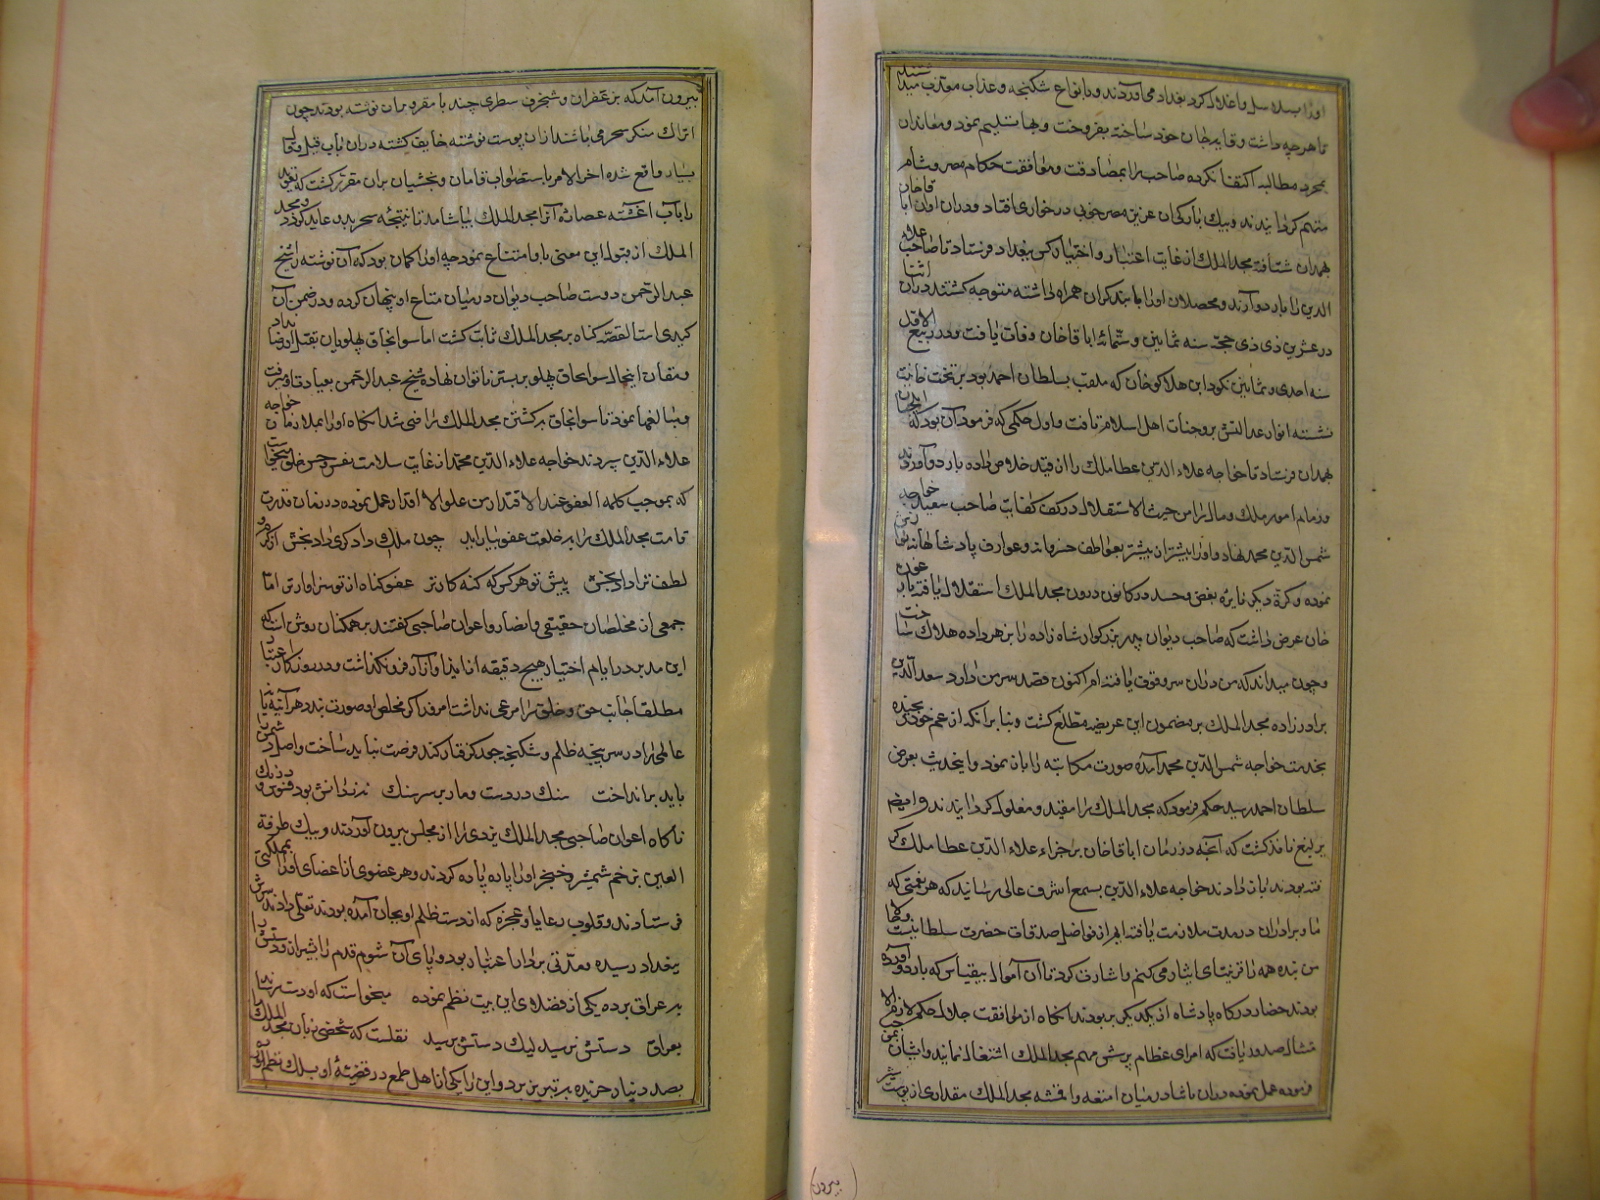 اورا بسلاسل و اغلال کرده بغداد می آوردند و بانواع شکنجه و عذاب معذب میداشتند
تا هرچه داشت و قایه جان خود ساخته بفروخت و بها تسلیم نمود و معاندان
بمجرد مطالبه اکتفا نکرده صاحب را بمصادقت و موافقت حکام مصر و شام
متهم کردانیدند و بیک بارکی آن عزیز مصر خوبی در خواری افتاد و در ان اوان ابا قاخان
بهمدان شتافته مجد الملک از غایت اعتبار و اختیار کس ببغداد فرستاد تا صاحب علاء
الدین را باردو آرند و محصلان اورا با بند کران همراه داشته متوجه کشتند در ان اثنا
در عشرین ذی حجه سنه ثمانین و ستمائه اباقاخان وفات یافت و در ربیع الاول
سنه احدی و ثمانین نکودار بن هلاکوخان که ملقب بسلطان احمد بود بر تخت خانیت
نشسته انوار عدالتش بر وجنات اهل اسلام تافت و اول حکمی که فرمود آن بود که ایلچیان
بهمدان فرستاد تا خواجه علاء الدین عطا ملک را از قید خلاص داده باردو آوردند
و زمام امور ملک و مال را من حیث الاستقلال در کف کفایت صاحب سعید خواجه
شمس الدین محمد نهاد و اورا بیشتر از بیشتر بعواطف خسروانه و عوارف پادشاهانه
نموده و کرة دیکر نایره بغض و حسد در کانون درون مجد الملک استقلال یافته بار غون
خان عرض داشت که صاحب دیوان پدر بزرکوار شاه زاده را زهر داده هلاک ساخت
و چون میداند که من در ان سر وقوف یافته ام اکنون قصد سر من دارد سعد الدین
برادر زاده مجد الملک بر مضمون این عریضه مطلع کشت و بنا بر آنکه از عم خود رنجیده
بخدمت خواجه شمس الدین محمد آمده صورت مکاتبه را باز نمود و این حدیث بعرض
سلطان احمد رسید حکم فرمود که مجد الملک را مقید و مغلول کردانیدند و ایضا
یرلیغ نافذ کشت که آنچه در زمان اباقاخان بر خواجه علاء الدین عطا ملک کر
فته بودند باز دادند خواجه علاء الدین بسمع اشرف اعلی رسانید که هر نعمتی که
ما و برادران در مدت ملازمت یافته ایم از فواضل صدقات حضرت سلطانیست و حالا
من بنده همه را قربتا ایثار می کنم و اشارت کرد تا آن اموال بیقیاس که باردو آورده
بودند حضار درکاه پادشاه از یکدیکر بربودند آنکاه از موافقت جلال حکم لازم الا
متثال صدور یافت که امرای عظام پرسش مهم مجد الملک اشتغال نمایند و ایشان بر حسب
فرموده عمل نموده در ان باشا در میان امتعه و اقمشه مجد الملک مقداری از پوست شیر
بیرون
بیرون آمد که بزعفران و شنجرف سطری چند نامقرو بر ان نوشته بودند چون
اتراک منکر سحر می باشند از ان پوست نوشته خایف کشته در ان باب قیل و قال
بسیار واقع شده آخر الامر باستصواب قامان و بخشیان بران مقرر کشت که تعویذ
را بآب آغشته عصاره آنرا مجد الملک بیاشامد تا نتیجه سحر بدو عاید کردد و مجد
الملک از قبول این معنی ابا و امتناع نمود چه اورا کمان بود که آن نوشته را شیخ
عبد الرحمن دوست صاحب دیوان در میان متاع او پنهان کرده و در ضمن آن
کیدی است القصه کناه بر مجد الملک ثابت کشت اما سونجاق پهلو بان بقتل او رضا نداد
و مقارن اینحال سونجاق پهلو بر بستر ناتوان نهاده شیخ عبد الرحمن بعیادت او میرفت
و مبالغها نمود تا سونجاق بر کشتن مجد الملک راضی شد آنکاه اورا بملازمان خواجه
علاء الدین سپردند خواجه علاء الدین محمد از غایت سلامت نفس و حسن خلق میخواست
که بموجب کلمه العفو عند الاقتدار من علو الاقدار عمل نموده در زمان قدرت
قامت مجد الملک را بخلعت عفو بیاراید چون ملک دادکری داد بخش از کرم و
لطف ترا داد بخش پیش تو هر کس که کنه کار تر عفو کناه از تو سزاوار تر اما
جمعی از مخلصان حقیقی و انصار و اعوان صاحبی کفتند بر همکنان روشن است که
این مدبر در ایام اختیار هیچ دقیقه از ایذا و آزار فرو نکذاشت و در روزکار اعتبار
مطلقا جانب حق و خلق را مرعی نداشت امروز اکر مخلص او صورت بندد هر آینه باز
عالمی را در سر پنجه ظلم و شکنجه جور کرفتار کند فرصت نباید ساخت و اصل دشمن
باید برانداخت سنک در دست و مار بر سر سنک نه ز دانش بود فسوس و درنک
ناکاه اعوان صاحبی مجد الملک یزدی را از مجلس بیرون آوردند و بیک طرفة
العین بزخم شمشیر و خنجر اورا پاره پاره کردند و هر عضوی از اعضای اورا بمملکتی
فرستادند و قلوب رعایا و عجزه که از دست ظلم او بجان آمده بودند تسلی دادند سرش
ببغداد رسیده و مدتی بر دار اعتبار بود و پای آن شوم قدم را بشیراز و دستش را
بعراق برده یکی از فضلا این بیت نظم نموده میخواست که او دست رساند
بعراق دستش نرسید لیک دستش برسید نقلست که شخصی زبان مجد الملک
بصد دینار خریده بتبریز برد و این را یکی از اهل طمع در قضیهٔ او بسلک نظم آورد